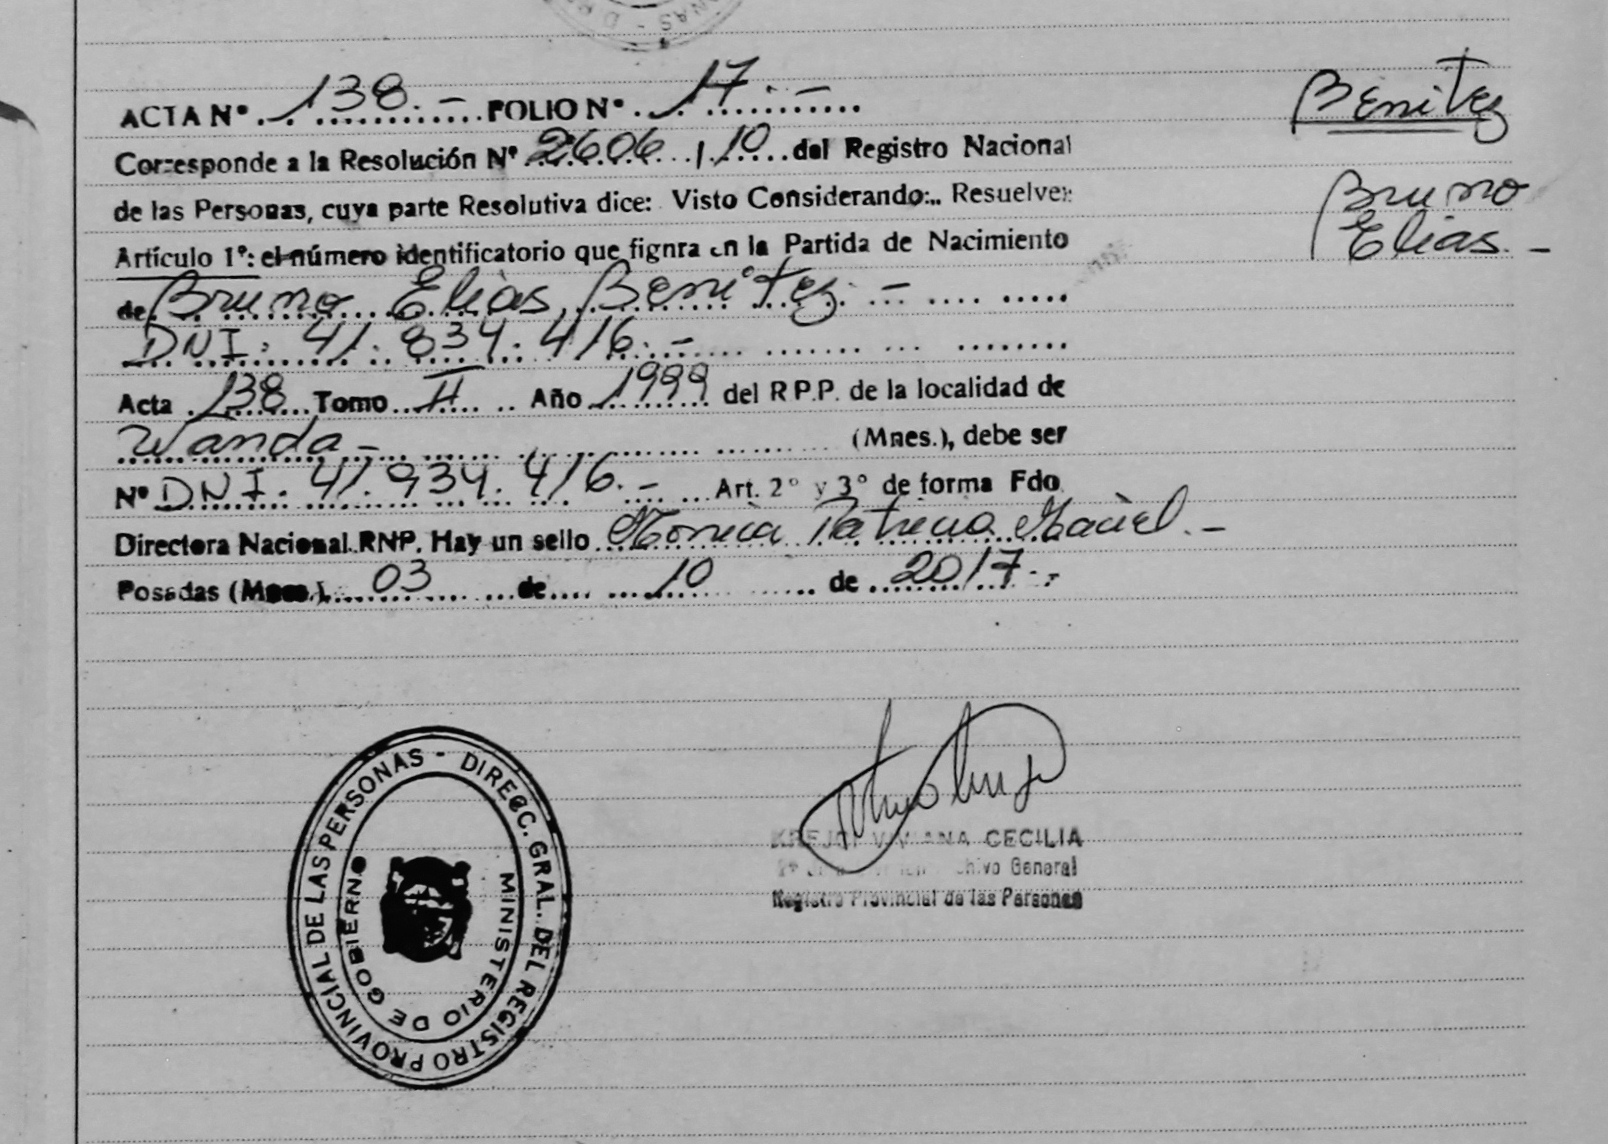 ACTA Nº 138.- FOLIO Nº 17.-
Corresponde a la Resolución Nº 2606 / 10 del Registro Nacional
de las Personas, cuya parte Resolutiva dice: Visto Considerando:.. Resuelve:
Artículo 1º: el número identificatorio que fignra en la Partida de Nacimiento
de Bruno Elias Benitez.-
DNI. 41.834.416.-
Acta 138 Tomo II Año 1999 del R.P.P. de la localidad de
Wanda- (Mnes.), debe ser
Nº DNI. 41.934.416.- Art. 2º y 3º de forma Fdo.
Directora Nacional RNP. Hay un sello Patricia
Posadas (Mnes.) 03 de 10 de 2017.-
Benitez
Bruno
Elias.-
VIVIANA CECILIA
General
Registro Provincial de las Personas
DIRECC. GRAL. DEL REGISTRO PROVINCIAL DE LAS PERSONAS -
MINISTERIO DE GOBIERNO